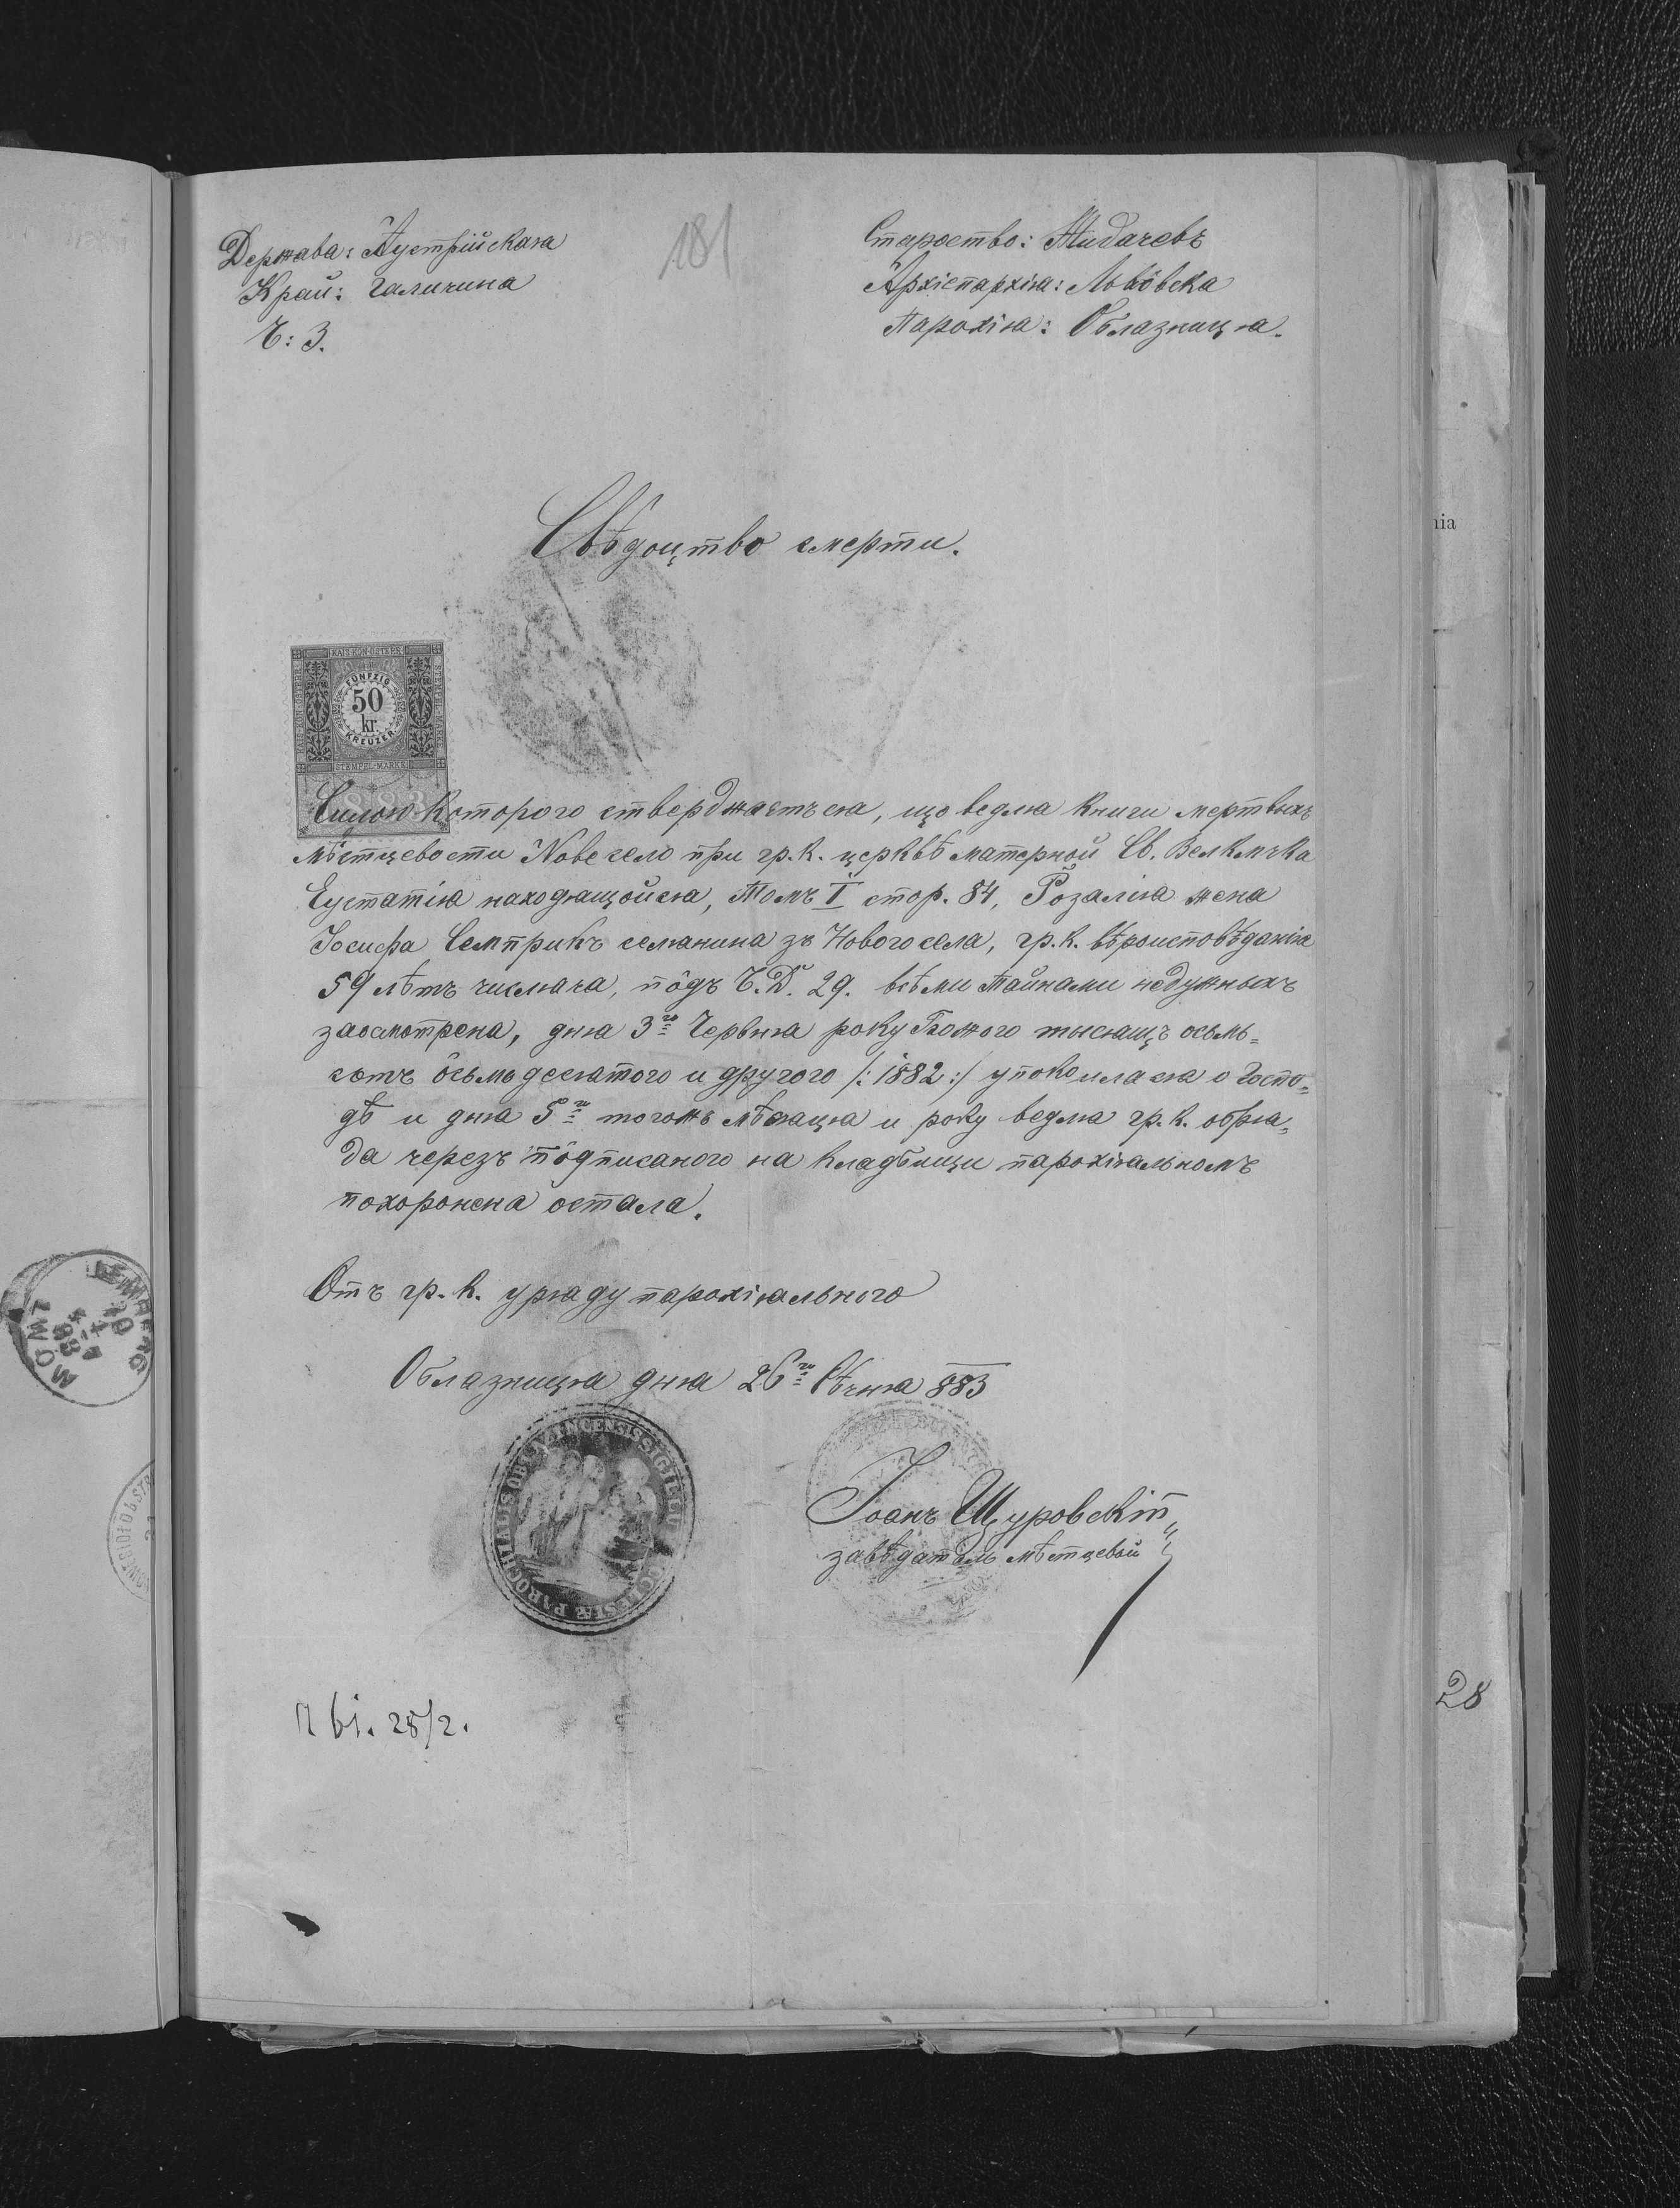 Держава: Аустрійская
Край: Галичина
Ч: 3.
181
Староство: Жидачевъ
Архіепархія: Львôвска
Парохія: Облазниця.
Свѣдоцтво смерти.
KAIS. KÖN. ÖSTERR.
FÜNFZIG
50
kr.
KREUZER
STEMPEL-MARKE
Силою которого стверджаеться, що ведля книги мертвыхъ
мѣстцевости Nове село при гр. к. церквѣ матерной Св. Великмчка
Еустатія находящойся, Томъ I стор. 84, Розалія жена
Іосифа Семприкъ селянина зъ Нового села, гр. к. вѣроисповѣданія
59 лѣтъ числяча, пôдъ Ч. Д. 29. всѣми Тайнами недужныхъ
заосмотрена, дня 3го Червня року Божого тысящъ осьмь=
сотъ ôсьмьдесятого и другого /: 1882 :/ упокоилася о Госпо=
дѣ и дня 5го тогожъ мѣсяця и року ведля гр. к. обря=
да черезъ пôдписаного на кладбищи парохіяльномъ
похоронена остала.
Отъ гр. к. уряду парохіяльного
Облазниця дня 26го Сѣчня 883
Іоанъ Щуровскій
завѣдатель мѣстцевый
28/2.
28
nia
LEMBERG
LWÓW